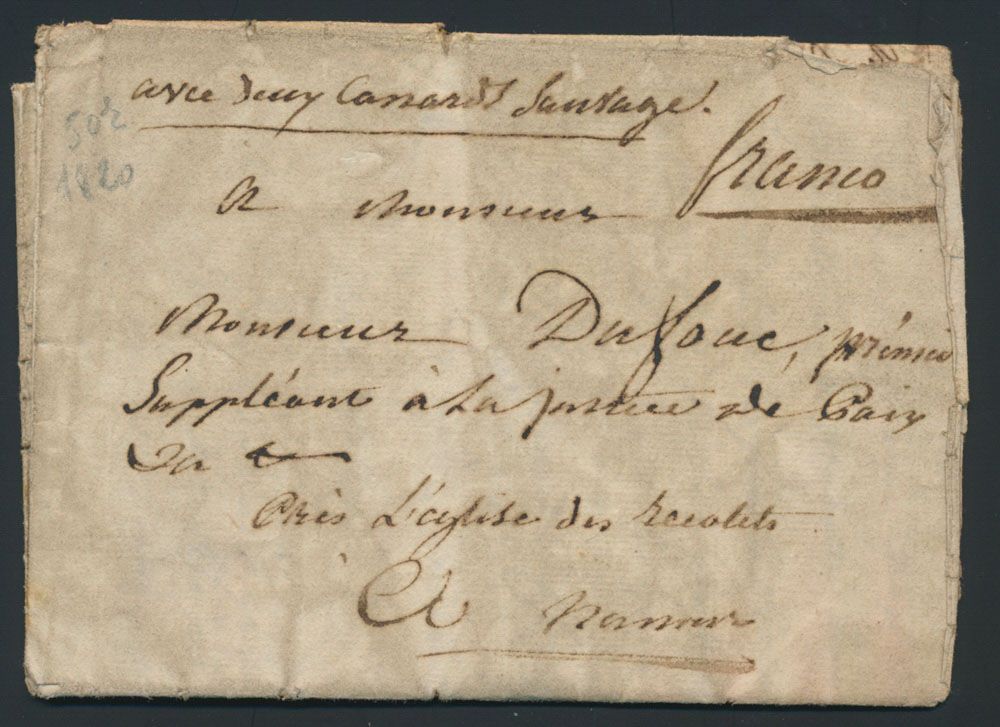 avec deux Canards Sauvage.
502
1820
franco
A Monsieur
Monsieur Dufoue, prémier
Suppléant à La justice de Paix
Du
Près L'église des recolets
à
A namur